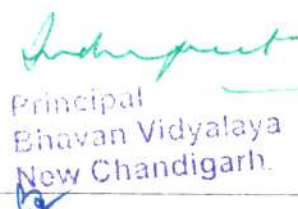 Principal
Bhavan Vidyalaya
New Chandigarh.